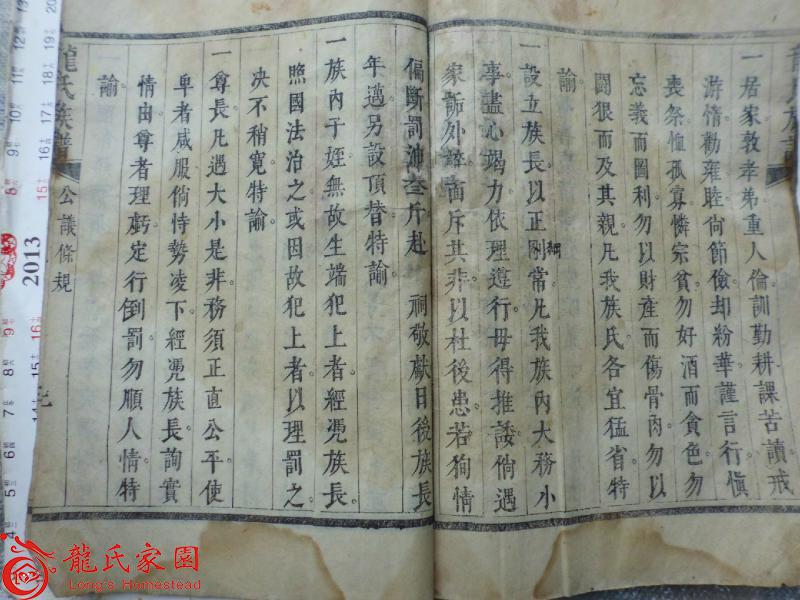 一居家敦孝弟重人倫訓勤耕課苦讀戒
游惰勸雍睦尚節儉却粉華謹言行慎
喪祭恤孤寡憐宗貧勿好酒而貪色勿
忘義而圖利勿以財產而傷骨肉勿以
鬪狠而及其親凡我族氏各宜猛省特
諭
一設立族長以正剛常凡我族內大務小
綱
事盡心竭力依理遵行毋得推諉倘遇
家詬外諍面斥其非以杜後患若狥情
偏斷罰油叁斤赴 祠敬獻日後族長
年邁另設頂替特諭
一族內子姪無故生端犯上者經凴族長
照國法治之或因故犯上者以理罰之
决不稍寬特諭
一尊長凡遇大小是非務須正直公平使
卑者咸服倘恃勢凌下經凴族長詢實
情由尊者理虧定行倒罰勿順人情特
諭
龍氏族譜
公議條規
2013
龍氏家園
Long's Homestead